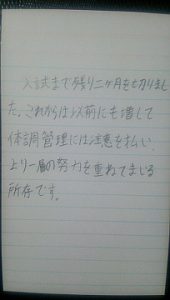 入試まで残り二ヶ月を切りまし
た。これからは以前にも増して
体調管理には注意を払い、
より一層の努力を重ねてまいる
所存です。